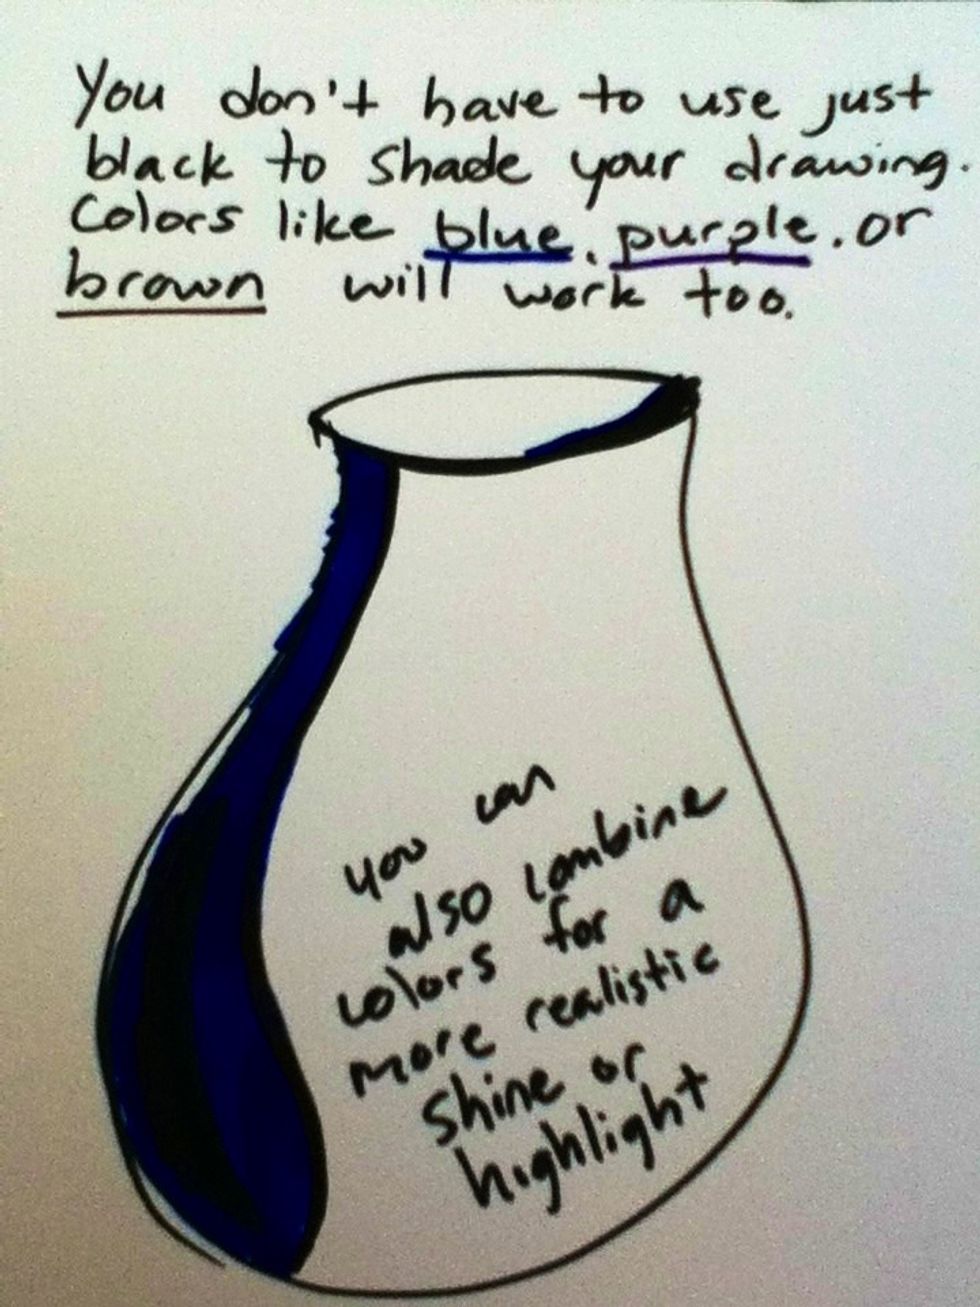 You don't have to use just
black to shade your drawing.
Colors like blue, purple, or
brown will work too.
you can
also combine
colors for a
more realistic
shine or
highlight